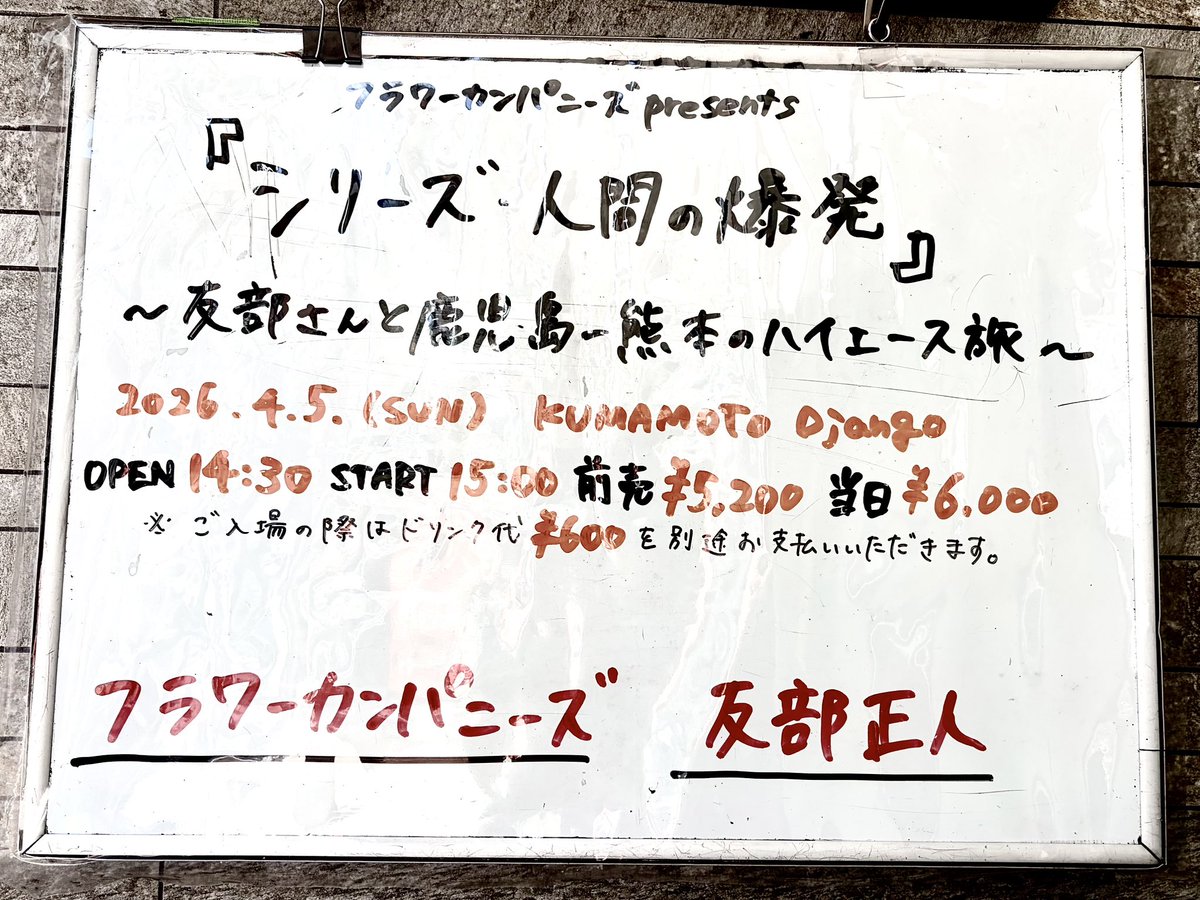 フラワーカンパニーズ presents
『シリーズ・人間の爆発』
～友部さんと鹿児島ー熊本のハイエース旅～
2026.4.5.(SUN) KUMAMOTO Django
OPEN 14:30 START 15:00 前売 ¥5,200 当日 ¥6,000
※ご入場の際はドリンク代¥600を別途お支払いいただきます。
フラワーカンパニーズ 友部正人